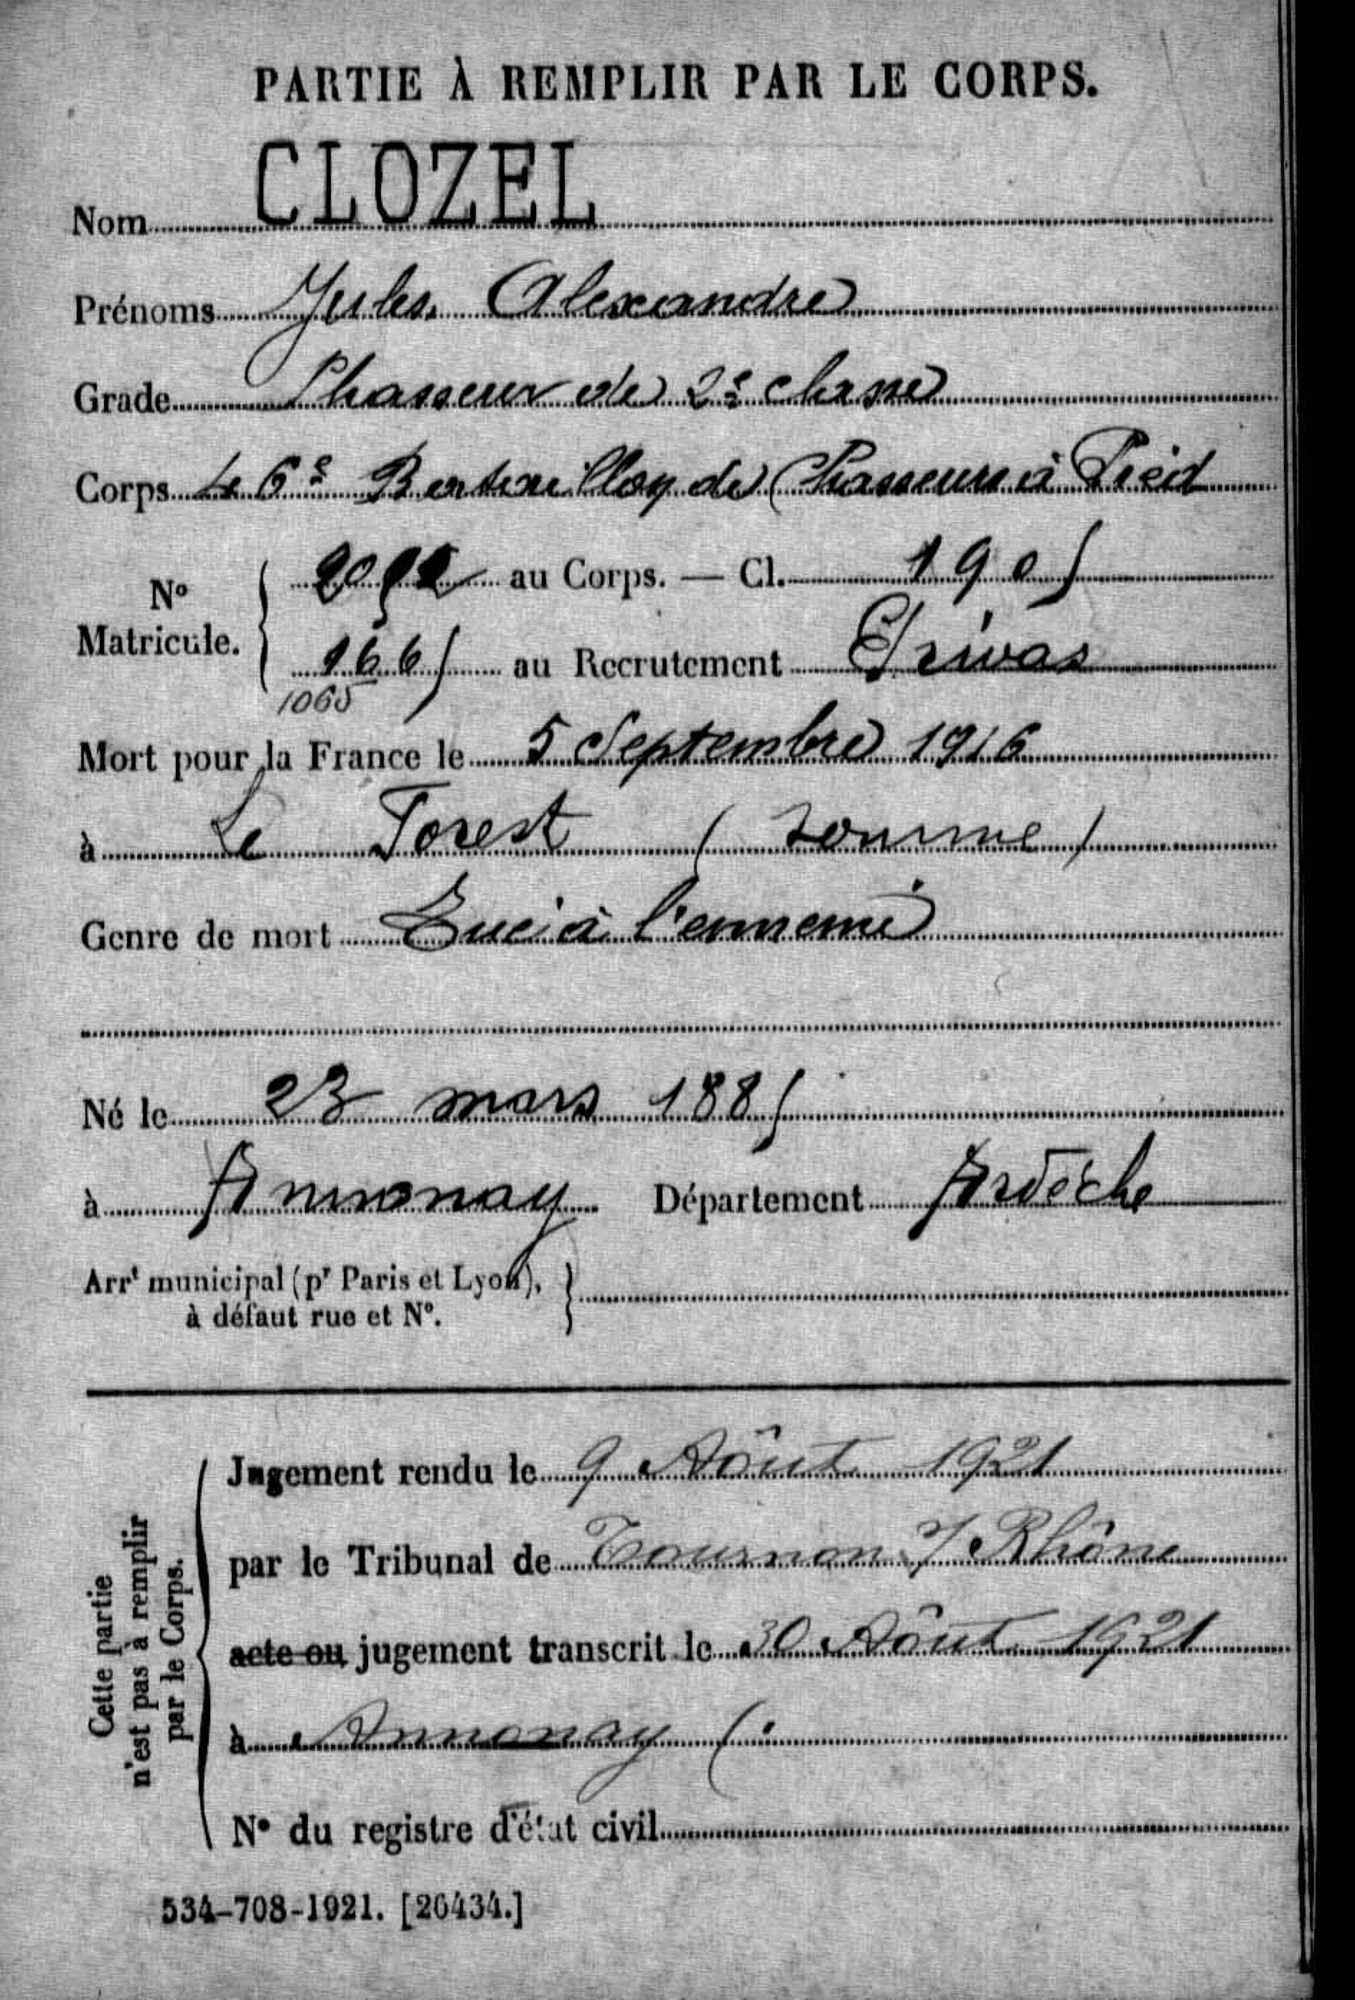 PARTIE À REMPLIR PAR LE CORPS.
Nom CLOZEL
Prénoms Jules Alexandre
Grade Chasseur de 2e classe
Corps Le 6e Bataillon de Chasseurs à Pied
No Matricule. au Corps. — Cl. 1905
1665 au Recrutement Privas
1065
Mort pour la France le 5 Septembre 1916
à Le Forest (Somme)
Genre de mort Tué à l'ennemi
Né le 23 mars 1885
à Annonay Département Ardèche
Arrt municipal (pr Paris et Lyon),
à défaut rue et No.
Cette partie
n'est pas à remplir
par le Corps.
Jugement rendu le 9 Aôut 1921
par le Tribunal de Tournon s/ Rhône
acte ou jugement transcrit le 30 Aôut 1921
à Annonay (
No du registre d'état civil
534-708-1921. [26434.]